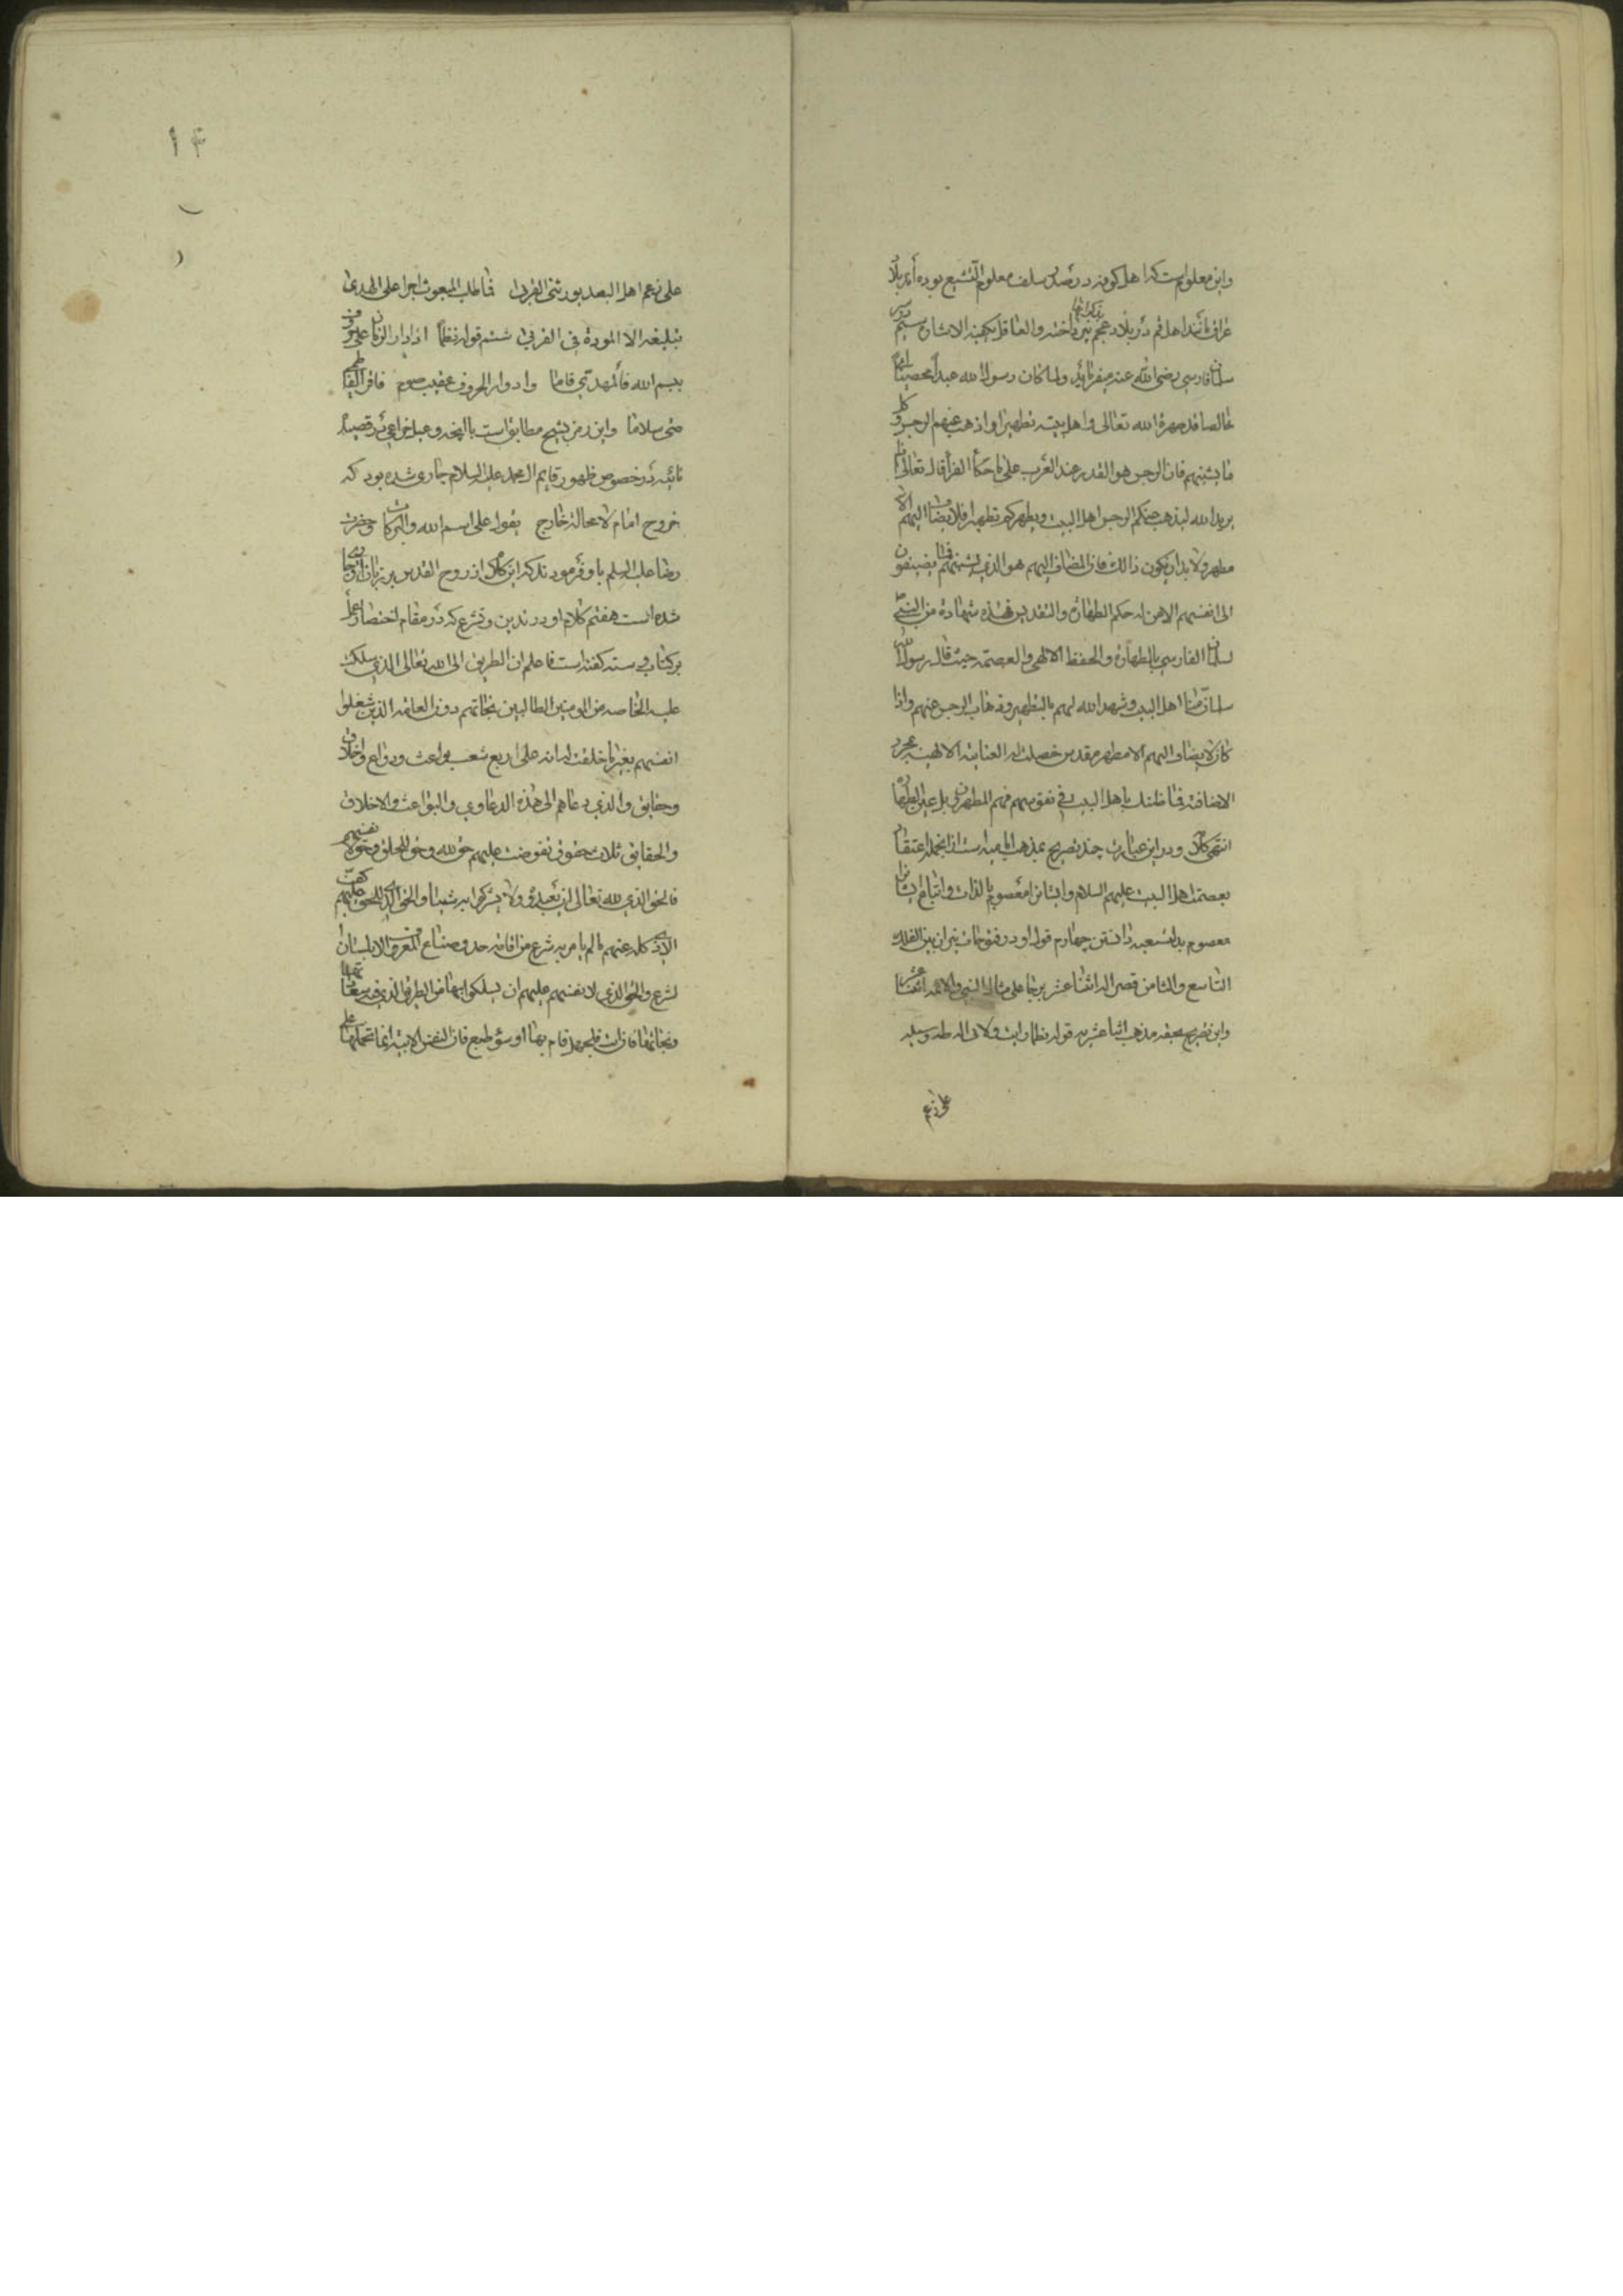 واین معلوم است که اهل کوفه در صدر سلف معلوم التشیع بوده اند بلاد
عراق مانند اهل قم در بلاد عجم والعاقل یکفیه الاشاره سیم
سلمان فارسی رضی الله عنه میفرماید ولما کان رسول الله عبدا محضا
خالصا قد طهره الله تعالی واهل بیته تطهیرا واذهب عنهم الرجس وکل
ما یشینهم فان الرجس هو القذر عند العرب علی ما حکی الفرا قال تعالی انما
یرید الله لیذهب عنکم الرجس اهل البیت ویطهرکم تطهیرا فلا یضاف الیهم الا
مطهر ولا بد ان یکون ذالک فان المضاف الیهم هو الذی یشبههم فما یضیفون
الی انفسهم الا من له حکم الطهارة والتقدیس فهذه شهادة من النبی
لسلمان الفارسی بالطهارة والحفظ الالهی والعصمة حیث قال رسول الله
سلمان منا اهل البیت وشهد الله لهم بالتطهیر وذهاب الرجس عنهم واذا
کان لا یضاف الیهم الا مطهر مقدس حصلت له العنایة الالهیة بمجرد
الاضافة فما ظنک باهل البیت فی نفوسهم فهم المطهرون بل عین الطهارة
انتهی کلامه ودر این عبارت چند تصریح بمذهب امامیه است از انجمله اعتقاد
بعصمت اهل البیت علیهم السلام وایشانرا معصوم بالذات واتباع ایشانرا
معصوم بالتبعیه دانستن چهارم قول او در فتوحات ان بین الفلک
التاسع والثامن قصر له اثنا عشر برجا علی مثال النبی والائمه اثنا عشر
واین تصریح بحقیه مذهب اثنا عشریه قوله نظما رایت ولائی ال طه وسیله
علی رغم
۱۴
علی رغم اهل البعد یورثنی القربی فما طلب المبعوث اجرا علی الهدی
بتبلیغه الا المودة فی القربی ششم قوله نظما اذا دار الزمان علی حروف
ببسم الله فالمهدی قاما وادوار الحروف عقیب صوم فاقرا الفاطمی
منی سلاما واین رمز بشیح مطابق است با انچه دعبل خزاعی در قصیده
تائیه در خصوص ظهور قایم ال محمد علیه السلام جاری شده بود که
خروج امام لا محالة خارج یقوم علی اسم الله والبرکات وحضرت
رضا علیه السلام باو فرمودند که این کلام از روح القدس بر زبان تو جاری
شده است هفتم کلام او در تدین وتشرع که در مقام اختصار عمل
بر کتاب وسنه گفته است فاعلم ان الطریق الی الله تعالی الذی سلکت
علیه الخاصه من المومنین الطالبین نجاتهم دون العامه الذین شغلوا
انفسهم بغیر ما خلقت له انه علی اربع شعب بواعث ودواع واخلاق
وحقایق والذی دعاهم الی هذه الدعاوی والبواعث والاخلاق
والحقایق ثلاث حقوق تفرضت علیهم حق لله وحق للخلق وحق لانفسهم
فالحق الذی لله تعالی ان یعبدوه ولا یشرکوا به شیئا والحق الذی للخلق علیهم کف
الاذی کله عنهم ما لم یامر به شرع من اقامه حد وصنایع المعروف
لشرع والحق الذی لانفسهم علیهم ان یسلکوا بها من الطرق الذی فیه سعادتها
ونجاتها فان ابت فلجهل قام بها او سوء طبع فان النفس الابیه انما تحملها علی